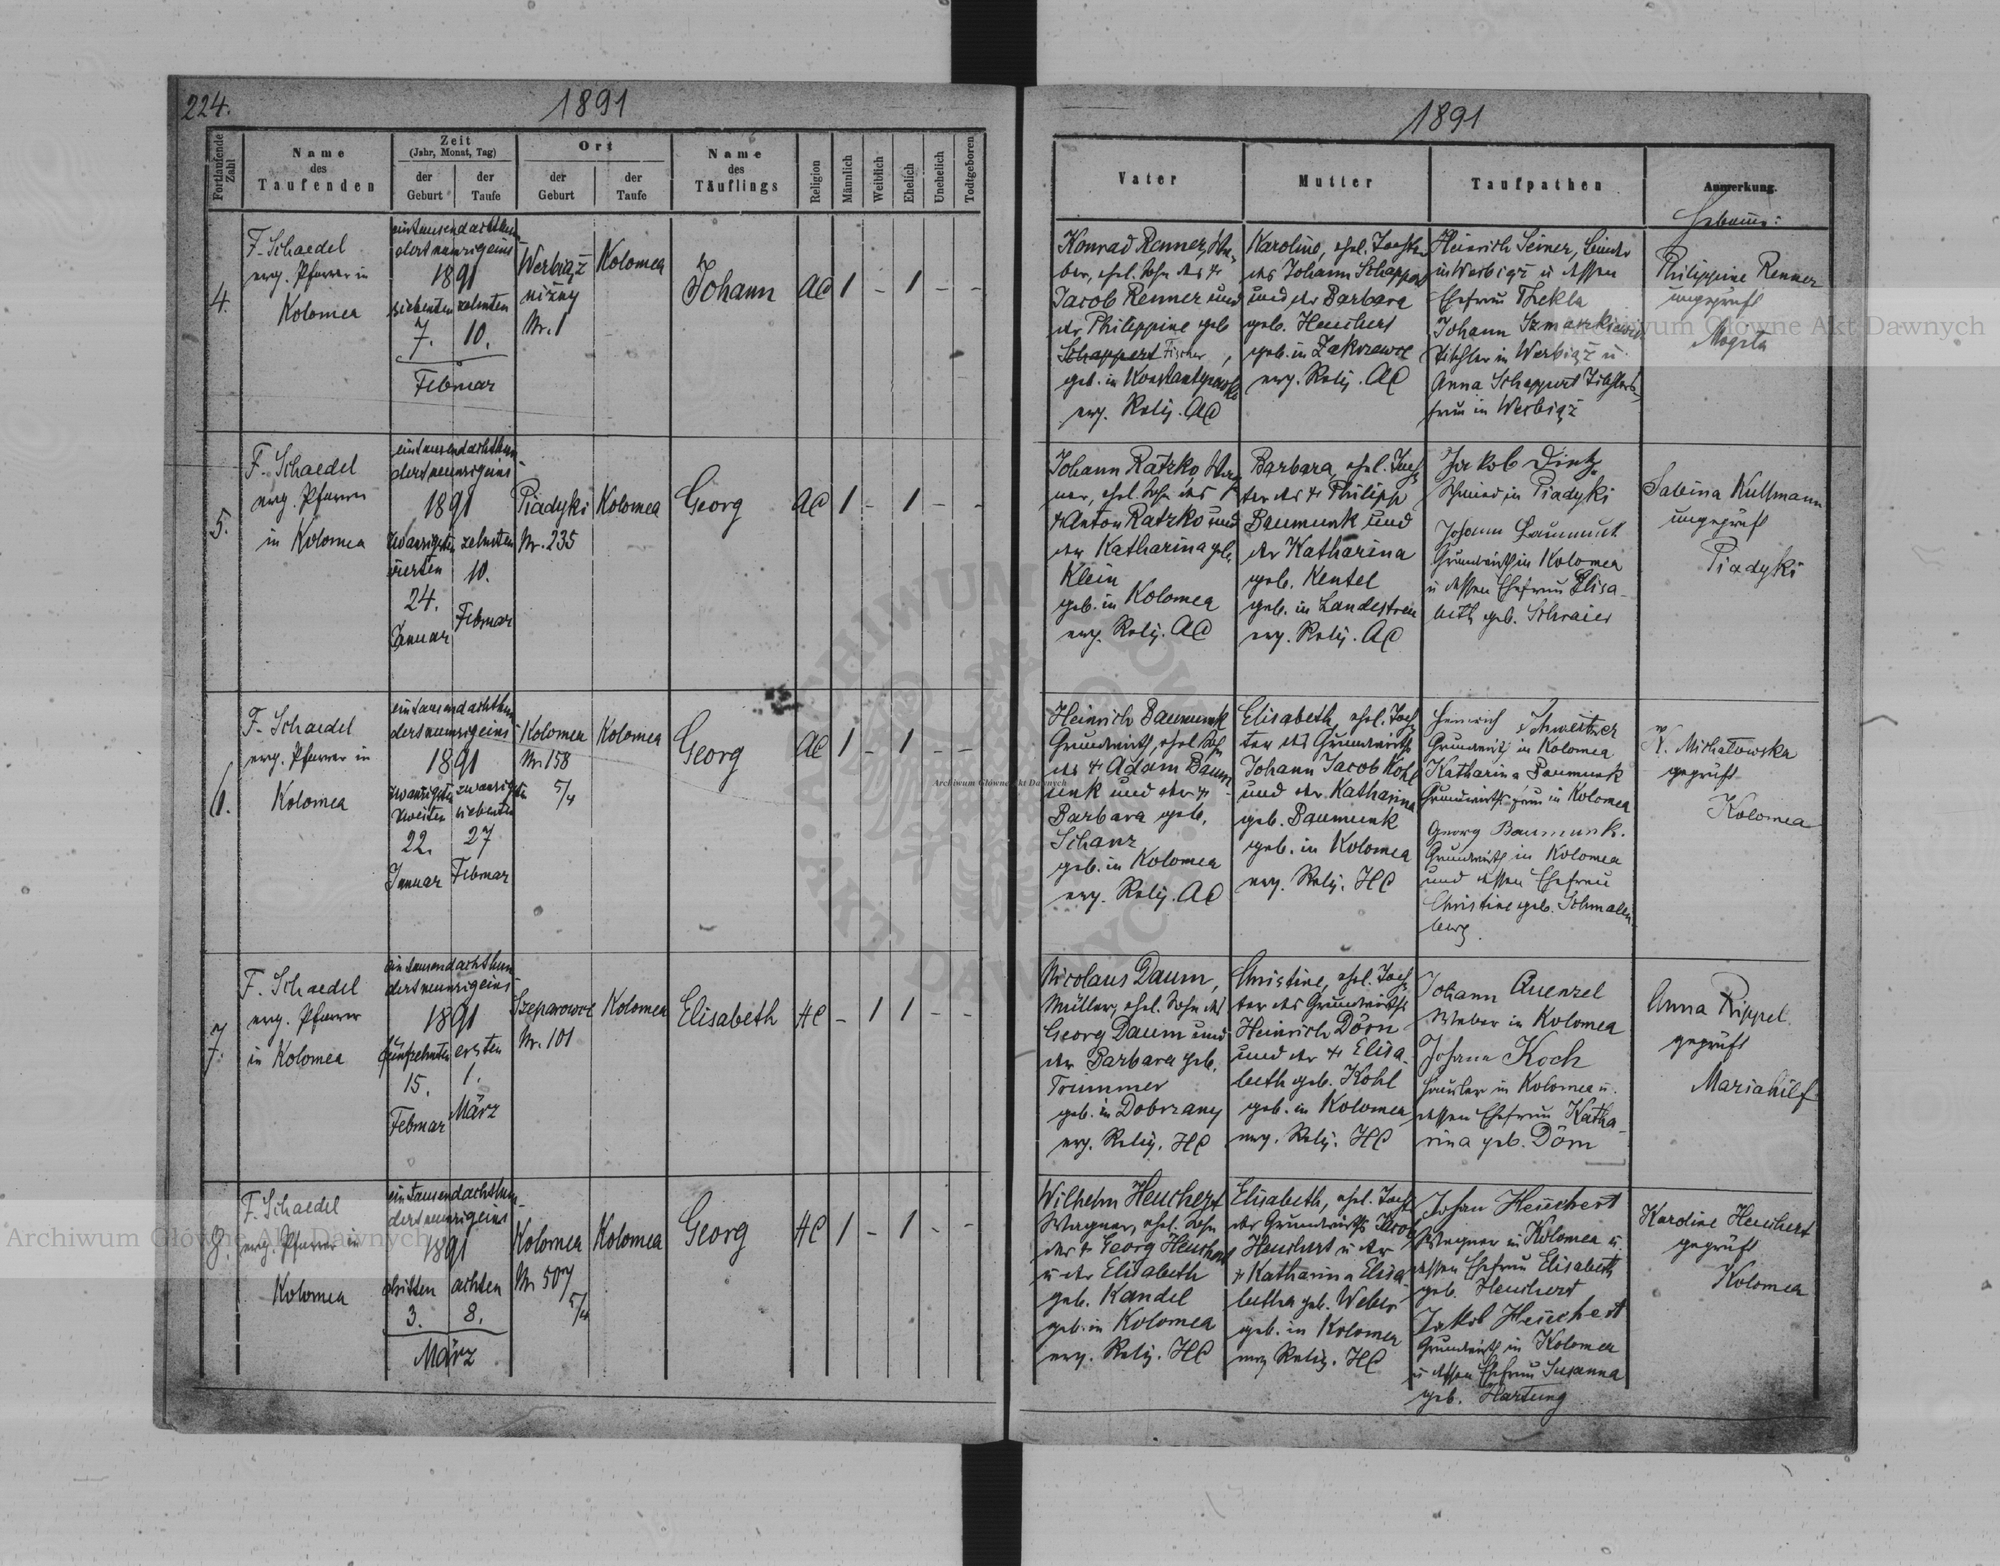 224.
1891
Portlaufende Zahl
Name des Taufenden
Zeit
(Jahr, Monat, Tag)
der Geburt
der Taufe
Ort
der Geburt
der Taufe
Name des Täuflings
Religion
Männlich
Weiblich
Ehelich
Unehelich
Todtgeboren
4.
F. Schaedel
evg. Pfarrer in
Kolomea
eintausendachthun-
dertneunzigeins
1891
siebenten zehnten
7. 10.
Februar
Werbiąż
niżny
Nr. 1
Kolomea
Johann
AC
1 - 1 - -
5.
F. Schaedel
evg. Pfarrer
in Kolomea
eintausendachthun-
dertneunzigeins
1891
zwanzigsten zehnten
vierten 10.
24. Februar
Januar
Piadyki
Nr. 235
Kolomea
Georg
AC
1 - 1 - -
6.
F. Schaedel
evg. Pfarrer in
Kolomea
eintausendachthun-
dertneunzigeins
1891
zwanzigsten zwanzigsten
zweiten siebenten
22. 27
Januar Februar
Kolomea
Nr. 158
5/4
Kolomea
Georg
AC
1 - 1 - -
7.
F. Schaedel
evg. Pfarrer
in Kolomea
eintausendachthun-
dertneunzigeins
1891
fünfzehnten ersten
15. 1.
Februar März
Szeparowce
Nr. 101
Kolomea
Elisabeth
HC
- 1 1 - -
8.
F. Schaedel
evg. Pfarrer in
Kolomea
eintausendachthun-
dertneunzigeins
1891
dritten achten
3. 8.
März
Kolomea
Nr. 507
5/4
Kolomea
Georg
HC
1 - 1 - -
1891
Vater
Mutter
Taufpathen
Anmerkung.
Hebamme:
Konrad Renner, We-
ber, ehel. Sohn des +
Jacob Renner und
der Philippine geb
Schappert Fischer,
geb. in Konstantynowka
evg. Relig. AC
Karoline, ehel. Tochter
des Johann Schappert
und der Barbara
geb. Heuchert
geb. in Zakrzewce
evg. Relig. AC
Heinrich Seiner,
in Werbiąż u dessen
Ehefrau Thekla
Johann Szmankiewicz
Tischler in Werbiąż u.
Anna Schappert Tischlers-
frau in Werbiąż
Philippine Renner
ungeprüft
Mogila
Johann Ratzko, Wag-
ner, ehel. Sohn des +
Anton Ratzko und
der Katharina geb.
Klein
geb. in Kolomea
evg. Relig. AC
Barbara, ehel. Toch-
ter des + Philipp
Baumunk und
der Katharina
geb. Kentel
geb. in Landestreu
evg. Relig. AC
Jakob Dietz
Schmied in Piadyki
Johann Baumunk
Grundwirth in Kolomea
u dessen Ehefrau Elisa-
beth geb. Schraier
Sabina Kullmann
ungeprüft
Piadyki
Heinrich Baumunk
Grundwirth, ehel. Sohn
des + Adam Baum-
unk und der +
Barbara geb.
Schanz
geb. in Kolomea
evg. Relig. AC
Elisabeth, ehel. Toch-
ter des Grundwirths
Johann Jacob Kohl
und der Katharina
geb. Baumunk
geb. in Kolomea
evg. Relig. HC
Heinrich Schweitzer
Grundwirth in Kolomea
Katharina Baumunk
Grundwirthsfrau in Kolomea
Georg Baumunk.
Grundwirth in Kolomea
und dessen Ehefrau
Christine geb. Schmalen-
berg.
N. Michałowska
geprüft
Kolomea
Nicolaus Daum,
Müller, ehel. Sohn des
Georg Daum und
der Barbara geb.
Trummer
geb. in Dobrzany
evg. Relig. HC
Christine, ehel. Toch-
ter des Grundwirths
Heinrich Dörn
und der + Elisa-
beth geb. Kohl
geb. in Kolomea
evg. Relig. HC
Johann Quenzel
Weber in Kolomea
Johann Koch
Häusler in Kolomea u.
dessen Ehefrau Katha-
rina geb. Dörn
Anna Rippel.
geprüft
Mariahilf
Wilhelm Heuchert
Wagner, ehel. Sohn
des + Georg Heuchert
u der Elisabeth
geb. Kandel
geb. in Kolomea
evg. Relig. HC
Elisabeth, ehel. Tocht.
des Grundwirths Jacob
Heuchert u der
+ Katharina Elisa-
betha geb. Weber
geb. in Kolomea
evg Relig. HC
Johan Heuchert
Wagner in Kolomea u.
dessen Ehefrau Elisabeth
geb. Heuchert
Jakob Heuchert
Grundwirth in Kolomea
u dessen Ehefrau Susanna
geb. Hartung
Karoline Heuchert
geprüft
Kolomea
Archiwum Główne Akt Dawnych
Archiwum Główne Akt Dawnych
Archiwum Główne Akt Dawnych